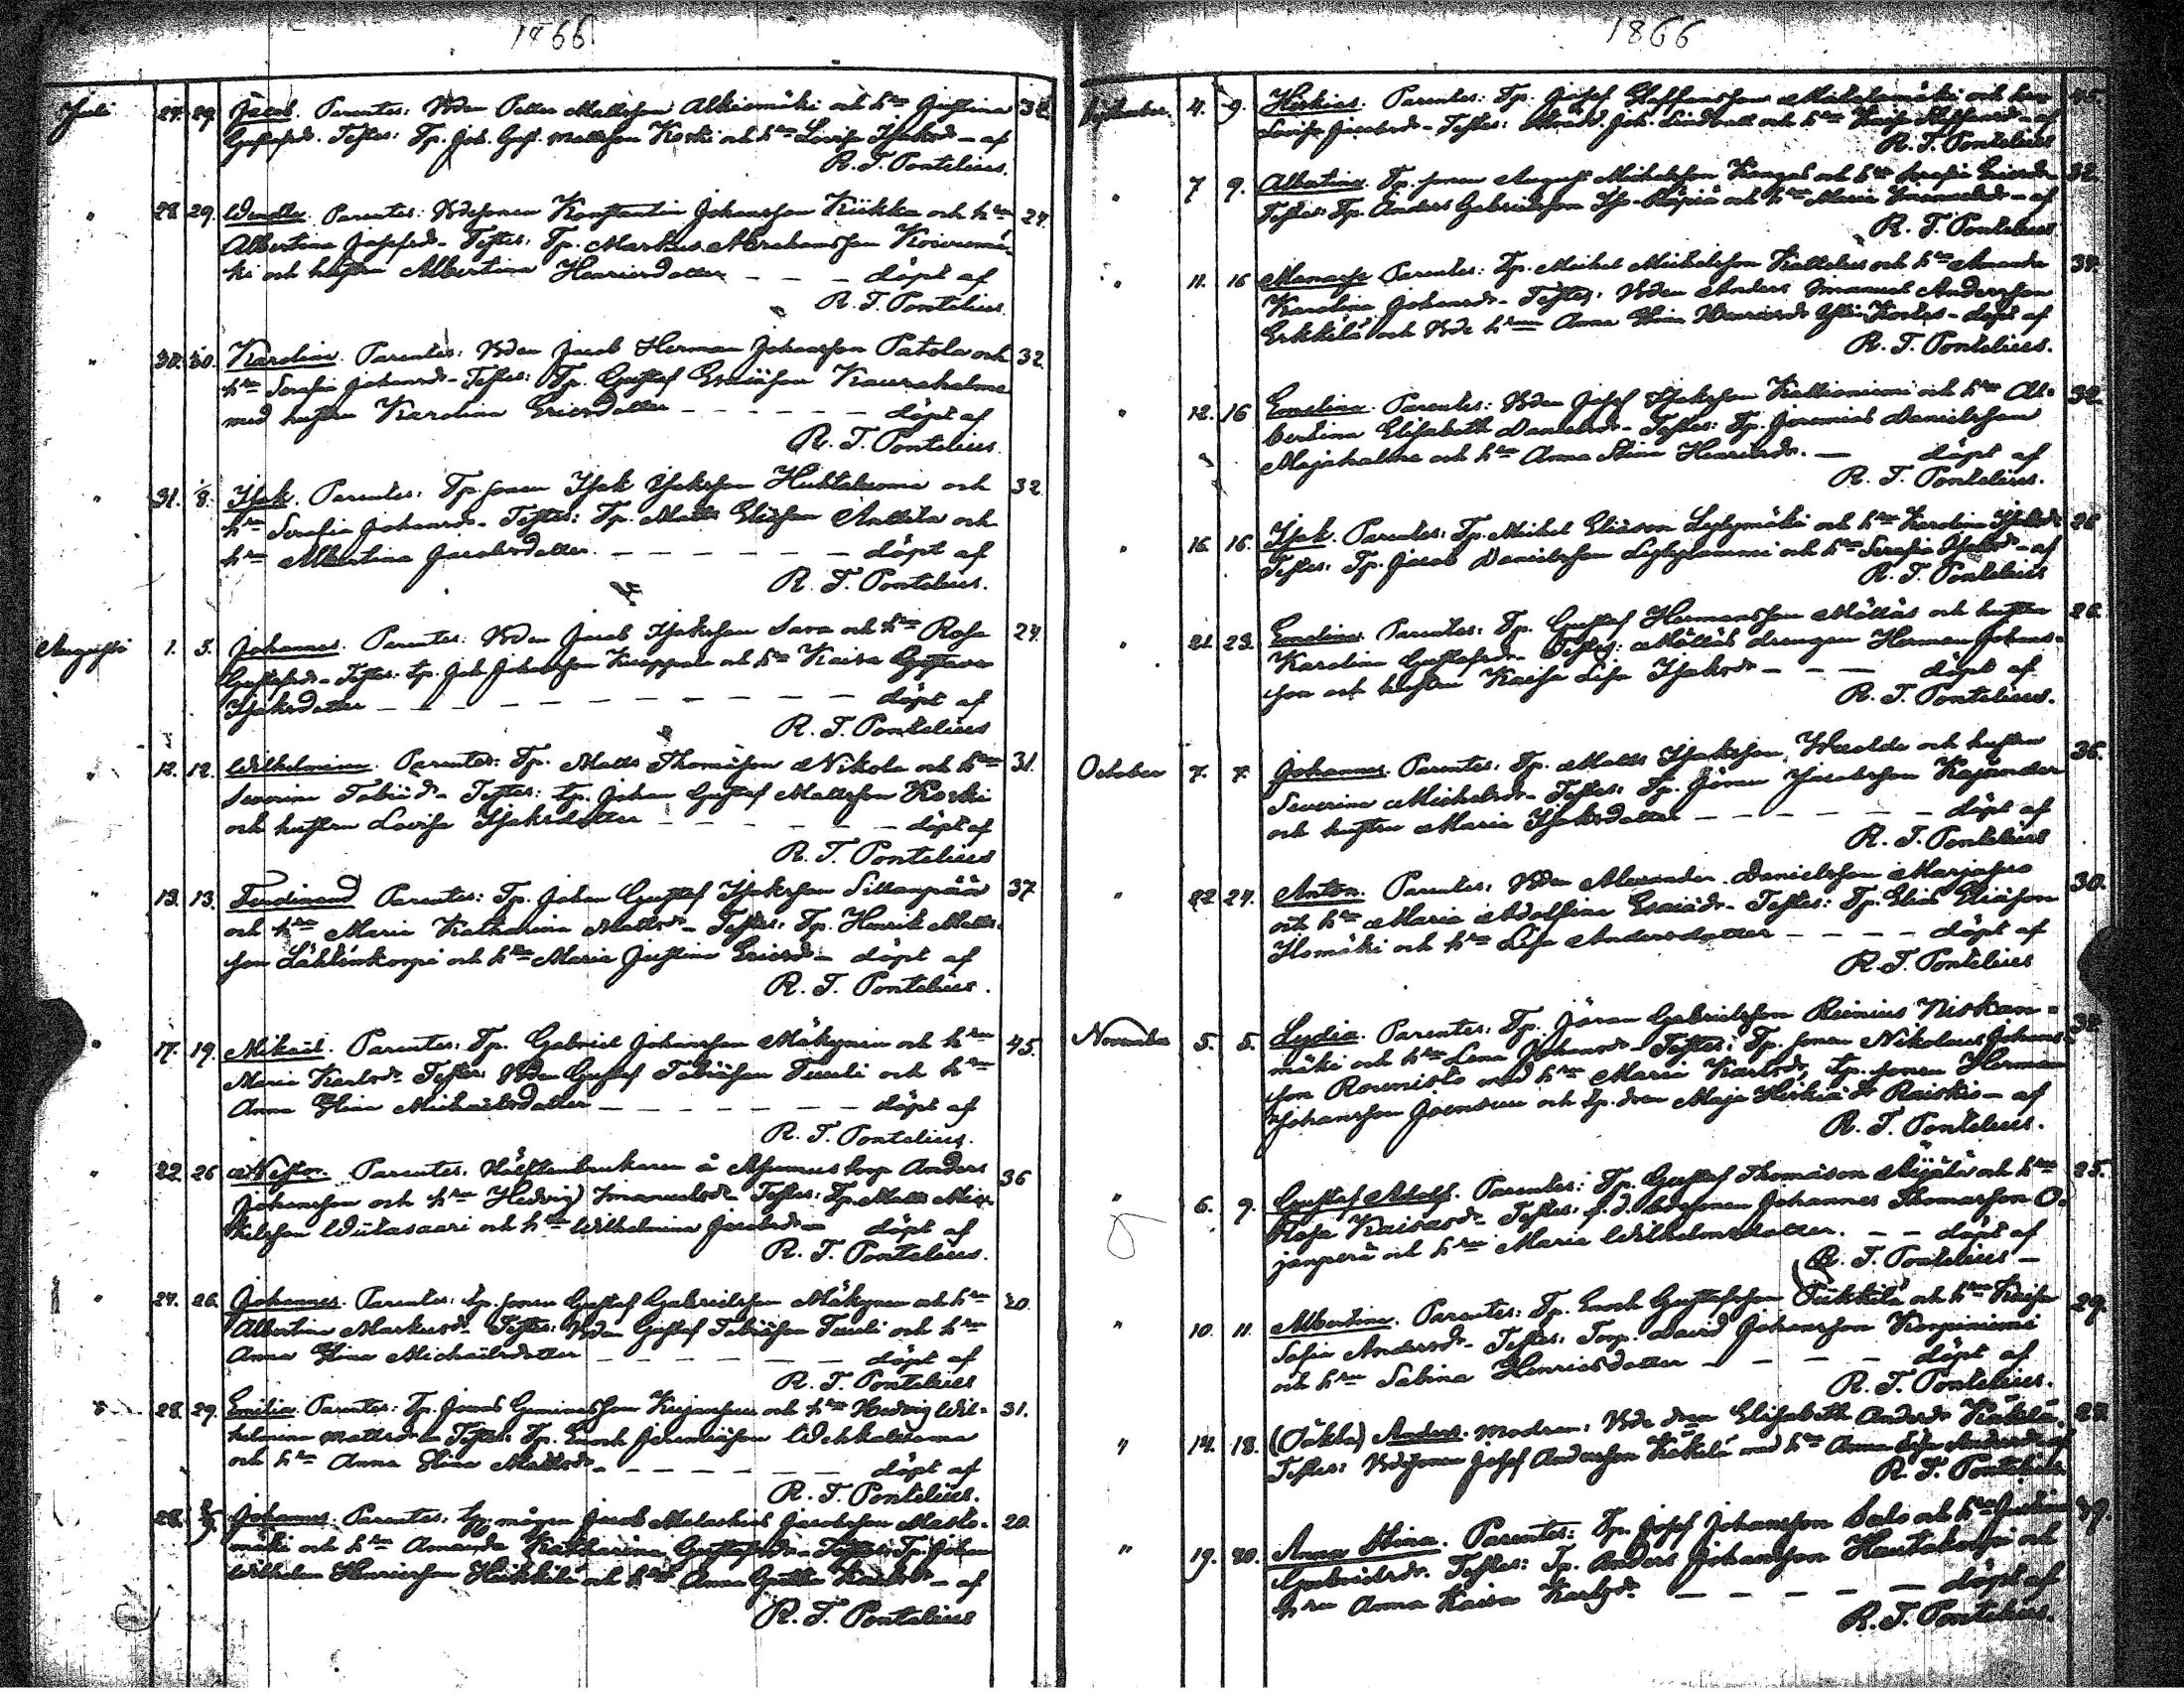 1866
Juli 27. 29. Jacob. Parentes: Bden Petter Mattsson Alkiomäki och hru Justina 32.
Gustafsd. Testes: Tp. Joh. Gust. Mattsson Koski och hru Lovisa Isaksd – af
R. T. Pontelius.
" 28. 29. Wendla. Parentes: Bdesonen Konstantin Johansson Kiikka och hru 27.
Albertina Josefsd. Testes: Tp. Markus Abrahamsson Koivumä-
ki och hustru Albertina Henricsdotter – – – döpt af
R. T. Pontelius.
" 30. 30. Karolina. Parentes: Bden Jacob Herman Johansson Patola och 32.
hru Serafia Johansd – Testes: Tp. Gustaf Esaiäson Kaurahalme
med hustru Karolina Ericsdotter – – – – – döpt af
R. T. Pontelius.
" 31. 8. Isak. Parentes: Tp. sonen Isak Isaksson Huhtakuoma och 32.
hru Serafia Johansd – Testes: Tp. Matts Eliäson Anttila och
hru Albertina Jacobsdotter – – – – – – döpt af
R. T. Pontelius.
Augusti 1. 5. Johannes. Parentes: Bden Jacob Isaksson Sara och hru Rosa 27.
Gustafsd – Testes: Tp. Joh. Johansson Knuppala och hru Kaisa Gustava
Isaksdotter – – – – – – – – – döpt af
R. T. Pontelius
" 12. 12. Wilhelmina. Parentes: Tp. Matts Thomäson Nikola och hru 31.
Severina Tobiäd – Testes: Tp. Johan Gustaf Mattsson Koski
och hustru Lovisa Isaksdotter – – – – – – döpt af
R. T. Pontelius
" 13. 13. Ferdinand Parentes: Tp. Johan Gustaf Isaksson Sillanpää 37
och hru Maria Katharina Mattsd – Testes: Tp. Henrik Matts-
son Lähteenkorpi och hru Maria Justina Ericsd – döpt af
R. T. Pontelius.
" 17. 19. Mikael. Parentes: Tp. Gabriel Johansson Mäkynen och hru 45.
Maria Karlsd – Testes: Bden Gustaf Tobiäson Tuuli och hru
Anna Stina Michaelsdotter – – – – – – – döpt af
R. T. Pontelius.
" 22. 26 Nestor. Parentes: Hälftenbrukaren å torp Anders 36
Johansson och hru Hedvig Imanuelsd – Testes: Tp. Matts Mic-
kelsson Wiitasaari och hru Wilhelmina Jacobsd – döpt af
R. T. Pontelius.
" 24. 26. Johannes. Parentes: Tp. sonen Gustaf Gabrielsson Mäkynen och hru 20.
Albertina Markusd – Testes: Bden Gustaf Tobiäson Tuuli och hru
Anna Stina Michaelsdotter – – – – – – döpt af
R. T. Pontelius
" 28. 29. Emilia. Parentes: Tp. Jonas Kujanpuu och hru Hedvig Wil- 31.
helmina Mattsd – Testes: Tp. Enoch Jeremiäson Wehkakoma
och hru Anna Stina Mattsd – – – – – – döpt af
R. T. Pontelius.
28. 2/9 Johannes. Parentes: Tp. mågen Jacob Jacobsson Masto- 20.
mäki och hru Amanda Katharina Gustafsd – Testes: Tp. Johan
Wilhelm Henricsson Heikkilä och hru Anna Greta – af
R. T. Pontelius
1866
September. 4. 9. Herkias. Parentes: Tp. Josef Staffansson och hru 45.
Lovisa Jacobsd – Testes: Joh. Lindvall och hru Kaisa – af
R. T. Pontelius
" 7 9. Albertina. Tp. sonen August Michelsson Kangas och hru Serafia Ericsd 32.
Testes: Tp. Anders Gabrielsson och hru Maria Imanuelsd – af
R. T. Pontelius
" 11. 16 Manasse Parentes: Tp. Michel Michelsson Kattelus och hru Amanda 34.
Karolina Johansd – Testes: Bden Anders Imanuel Andersson
Erkkilä och Bde hru Anna Stina Henricsd Yli – döpt af
R. T. Pontelius.
" 12. 16 Emelina. Parentes: Bden Josef Isaksson Kallioniemi och hru Al- 32.
bertina Elisabeth Danielsd – Testes: Tp. Jeremias Danielsson
Majahalme och hru Anna Stina Henricsd. – döpt af
R. T. Pontelius.
" 16. 16. Isak. Parentes: Tp. Michel Eliäson Lylymäki och hru Karolina Isaksd 26
Testes: Tp. Jacob Danielsson Lylylammi och hru Serafia Isaksd – af
R. T. Pontelius
" 21. 23. Emelina. Parentes: Tp. Gustaf Hermansson Möttäs och hustru 26.
Karolina Gustafsd – Testes: Möttäs drengen Herman Johans-
son och hustru Kaisa Lisa Isaksd – – – döpt af
R. T. Pontelius.
October 7. 7. Johannes. Parentes: Tp. Matts Isaksson och hustru 36.
Severina Michelsd – Testes: Tp. Jöran Jacobsson Kajander
och hustru Maria Isaksdotter – – – – – – döpt af
R. T. Pontelius
" 22 27. Anton. Parentes: Bden Alexander Danielsson Marjapuro 30.
och hru Maria Adolfina Esaiäd – Testes: Tp. Elias Eliäson
Isomäki och hru Lisa Andersdotter – – – – döpt af
R. T. Pontelius
November 5. 5. Lydia. Parentes: Tp. Jöran Gabrielsson Reinius Niskan- 32.
mäki och hru Lena Johansd – Testes: Tp. sonen Nikolaus Johans-
son Rounisto med hru Maria Karlsd, Tp. sonen Herman
Johansson Joensuu och Tp. dren Maja Herkiä dr Raiskio – af
R. T. Pontelius.
" 6. 9. Gustaf Adolf. Parentes: Tp. Gustaf Thomäson och hru 25.
Rosa Kaisasd – Testes: f. d. Bdesonen Johannes Thomasson O-
janperä och hru Maria Wilhelmsdotter. – – döpt af
R. T. Pontelius –
" 10. 11. Albertina. Parentes: Tp. Enoch Gustafsson och hru Kaisa 29.
Sofia Andersd – Testes: Torp. David Johansson Korpiniemi
och hru Sabina Henricsdotter – – – – döpt af
R. T. Pontelius.
" 14. 18. (Oäkta) Anders. Modren: Bde dren Elisabeth Andersd Käkelä. 23.
Testes: Bdesonen Josef Andersson Käkelä med hru Anna Lisa Andersd af
R. T. Pontelius
" 19. 20. Anna Stina. Parentes: Tp. Josef Johansson Salo och hru Justina 39.
Gabrielsdr. Testes: Tp. Anders Johansson Hautakorpi och
hru Anna Kaisa Karlsdr. – – – – – döpt af
R. T. Pontelius.